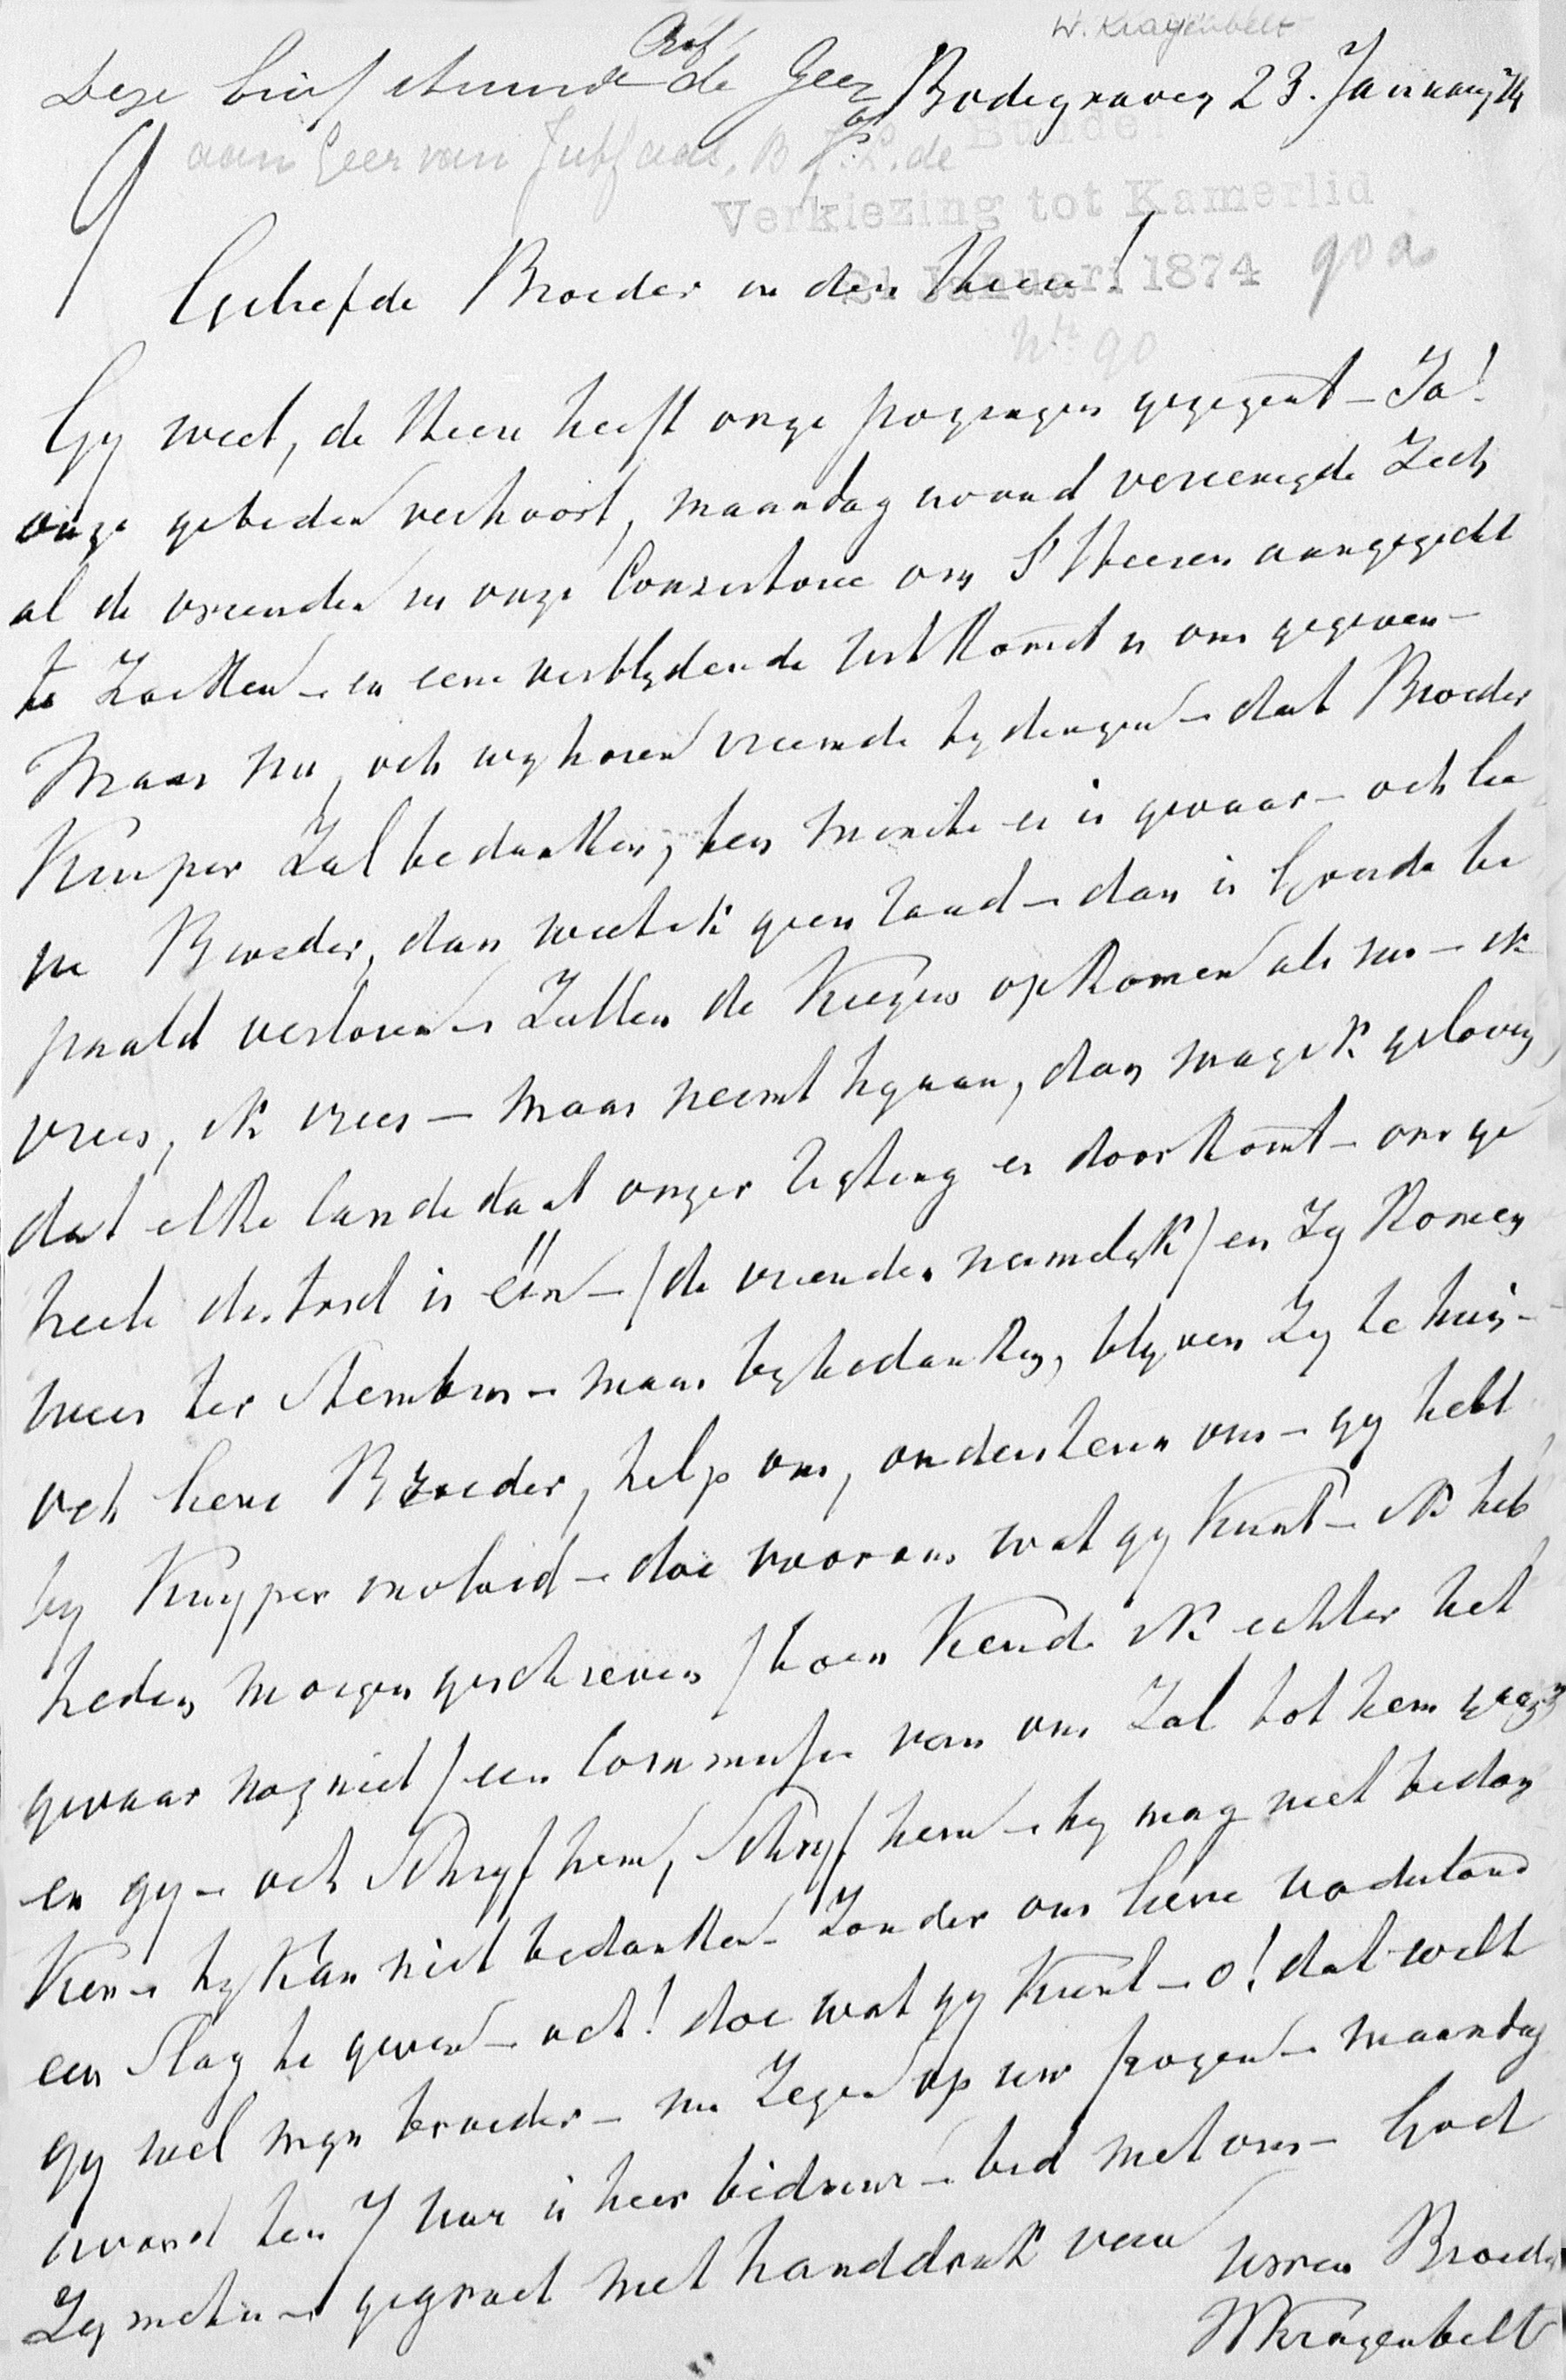 W. Kragenbelt
Deze brief stuurde Prof de Geer
Bodegraven 23. January 74
aan Geer van Jutfaas, B. J. L. de
Bundel
Verkiezing tot Kamerlid
21 Januari 1874 90a
Nr 90
9
Geliefde Broeder in den Heere!
Gy weet, de Heere heeft onze pogingen gezegent – Ja!
onze gebeden verhoort, maandag avond vereenigde Zich
al de vrienden in onze Consistorie om S'Heeren aangezicht
te Zoeken – en eene verblydende uitkomst is ons gegeven –
Maar nu, och wy horen vreemde tydingen – dat Broeder
Kuyper Zal bedanken, ten minste er is gevaar – och lie
ve Broeder, dan weet ik geen raad – dan is Gouda be
paald verloren – Zullen de Kiezers opkomen als nu – ik
vrees, ik vrees – maar neemt hy aan, dan mag ik geloven,
dat elke Candidaat onzer rigting er door komt – ons ge
heele district is één – (de vrienden namelyk) en Zy komen
weer ter Stembus – maar by bedanken, blyven Zy te huis –
och lieve Broeder, help ons, ondersteun ons – gy hebt
by Kuyper invloed – doe voor ons wat gy kunt – ik heb
heden morgen geschreven (toen kende ik echter het
gevaar nog niet) een Commissie van ons Zal tot hem gaan
en gy – och Schryf hem, Schryf hem – hy mag niet bedan
ken – hy kan niet bedanken – Zonder ons lieve vaderland
een Slag te geven – och! doe wat gy kunt – o! dat wilt
gy wel myn broeder – nu Zegen op uw pogen – maandag
avond ten 7 uur is hier bidUur – bid met ons – God
Zy met u – gegroet met handdruk van
Uwen Broeder
WKragenbelt